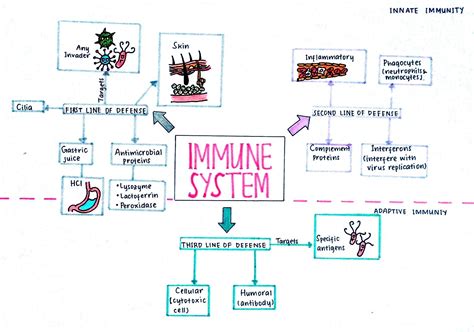 INNATE IMMUNITY
Any
Invader
Skin
Targets
Cilia
FIRST LINE OF DEFENSE
Gastric
juice
HCl
Antimicrobial
proteins
• Lysozyme
• Lactoferrin
• Peroxidase
Inflammatory
Phagocytes
(neutrophils &
monocytes)
SECOND LINE OF DEFENSE
Complement
Proteins
Interferons
(interfere with
virus replication)
IMMUNE
SYSTEM
ADAPTIVE IMMUNITY
THIRD LINE OF DEFENSE
Targets
Specific
antigens
Cellular
(cytotoxic
cell)
Humoral
(antibody)